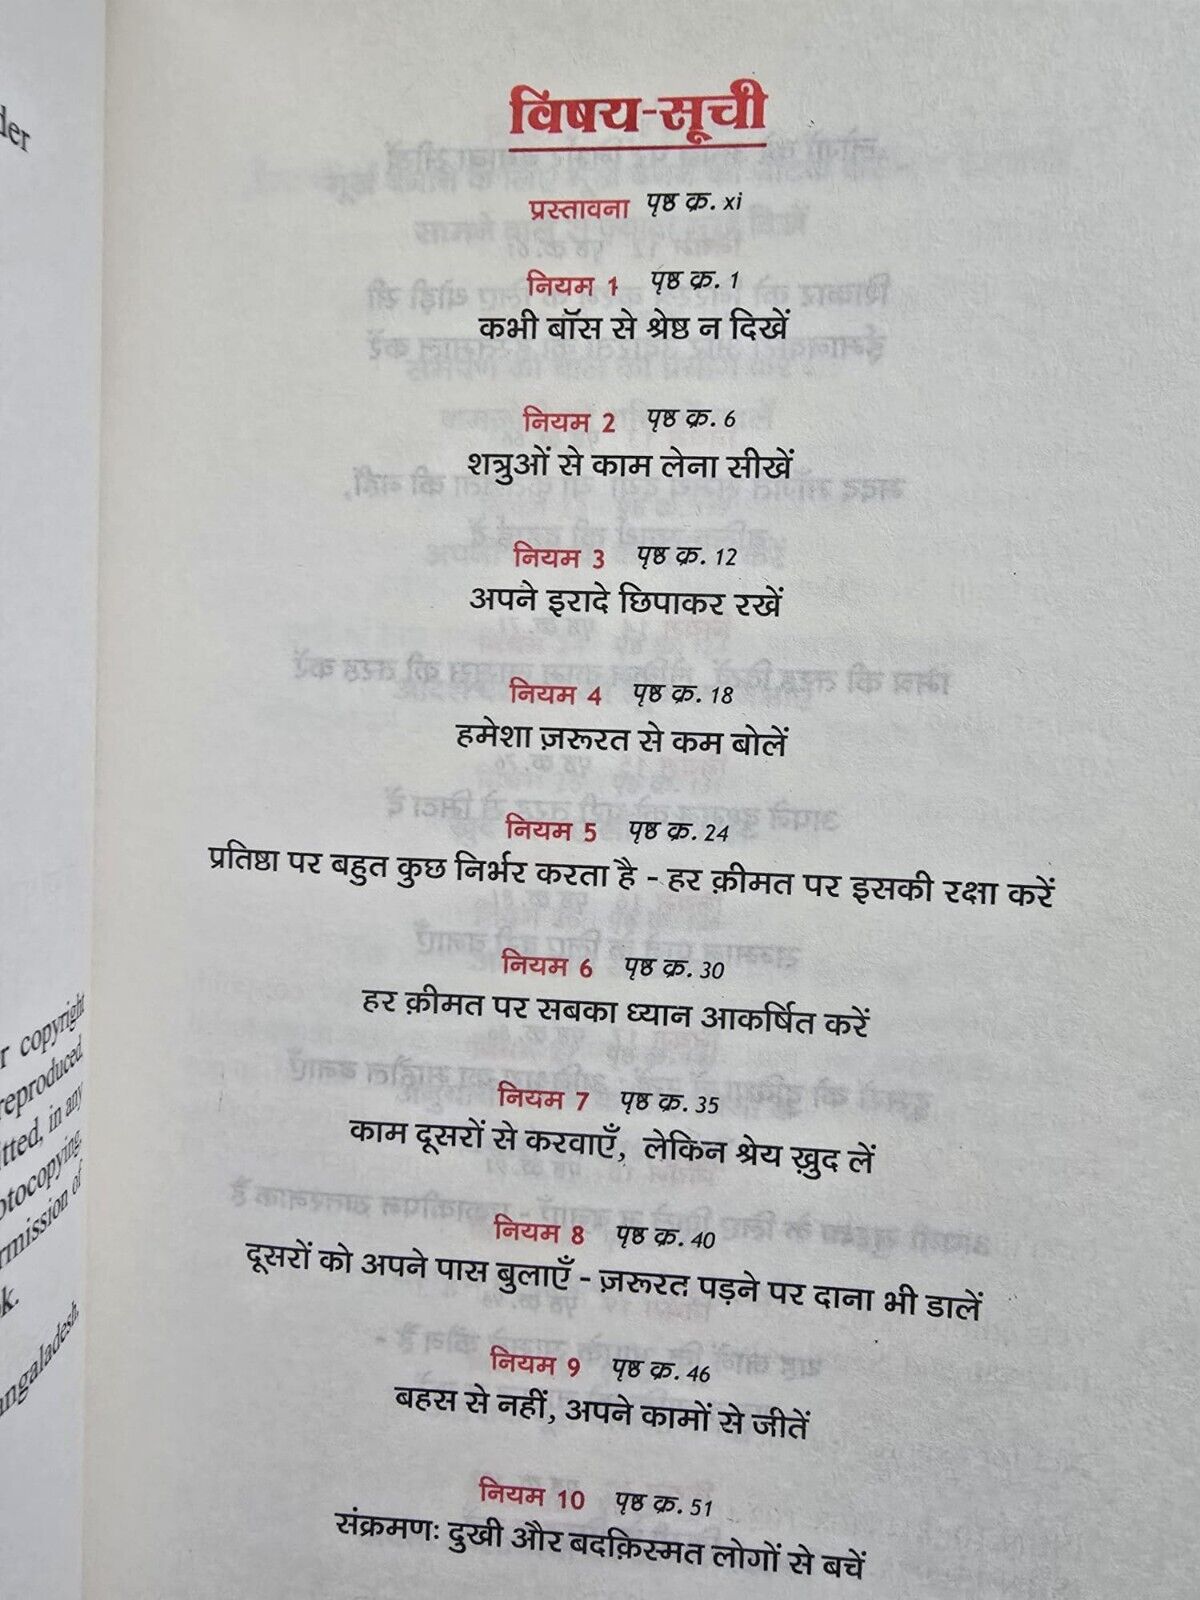 विषय-सूची
प्रस्तावना पृष्ठ क्र. xi
नियम 1 पृष्ठ क्र. 1
कभी बॉस से श्रेष्ठ न दिखें
नियम 2 पृष्ठ क्र. 6
शत्रुओं से काम लेना सीखें
नियम 3 पृष्ठ क्र. 12
अपने इरादे छिपाकर रखें
नियम 4 पृष्ठ क्र. 18
हमेशा ज़रूरत से कम बोलें
नियम 5 पृष्ठ क्र. 24
प्रतिष्ठा पर बहुत कुछ निर्भर करता है - हर क़ीमत पर इसकी रक्षा करें
नियम 6 पृष्ठ क्र. 30
हर क़ीमत पर सबका ध्यान आकर्षित करें
नियम 7 पृष्ठ क्र. 35
काम दूसरों से करवाएँ, लेकिन श्रेय ख़ुद लें
नियम 8 पृष्ठ क्र. 40
दूसरों को अपने पास बुलाएँ - ज़रूरत पड़ने पर दाना भी डालें
नियम 9 पृष्ठ क्र. 46
बहस से नहीं, अपने कामों से जीतें
नियम 10 पृष्ठ क्र. 51
संक्रमण: दुखी और बदक़िस्मत लोगों से बचें
copyright
reproduced,
in any